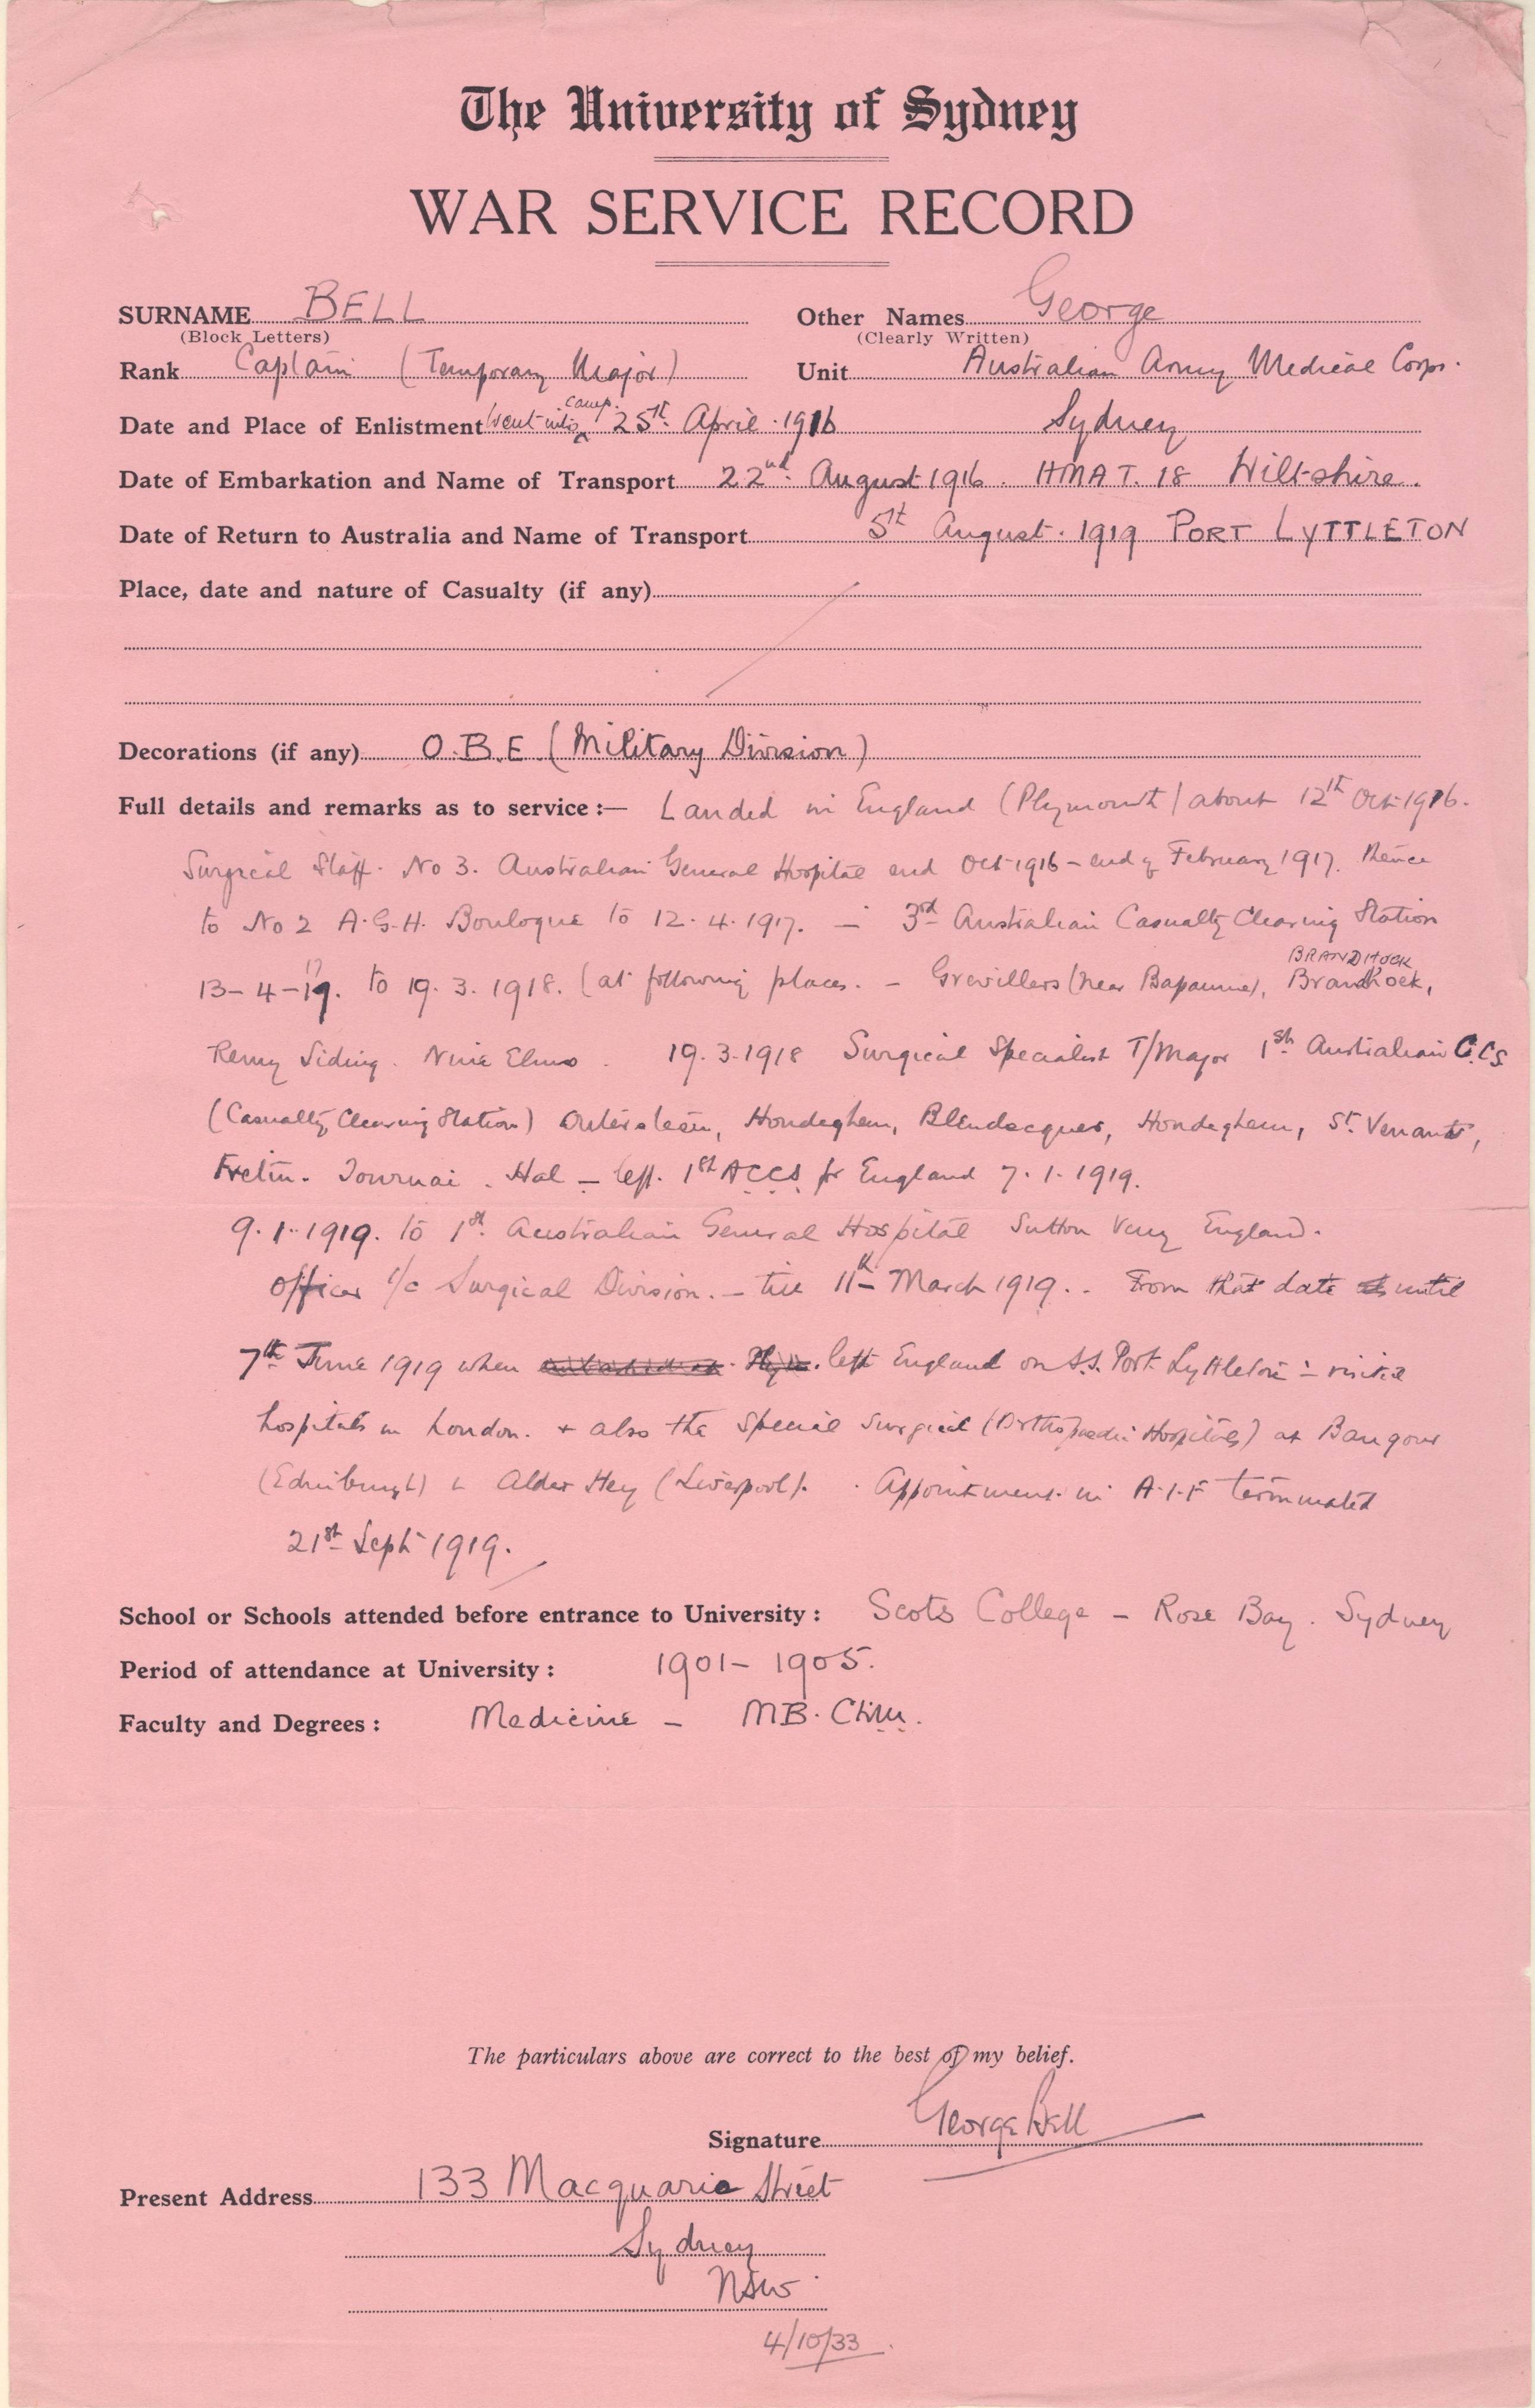 The University of Sydney
WAR SERVICE RECORD
SURNAME BELL Other Names George
(Block Letters) (Clearly Written)
Rank Captain (Temporary Major) Unit Australian Army Medical Corps.
camp.
Date and Place of Enlistment Went into 25st. April. 1916 Sydney
Date of Embarkation and Name of Transport 22nd. August 1916. HMAT. 18 Wiltshire.
Date of Return to Australia and Name of Transport 5th August. 1919 PORT LYTTLETON
Place, date and nature of Casualty (if any)
Decorations (if any) O.B.E. (Military Division)
Full details and remarks as to service:— Landed in England (Plymouth) about 12th Oct 1916.
Surgical Staff. No 3. Australian General Hospital end Oct 1916 – end of February 1917. thence
to No 2 A.G.H. Boulogne to 12.4.1917. — 3rd Australian Casualty Clearing Station
17 BRANDHOCK
13-4-19. to 19.3.1918. (at following places. – Grevillers (near Bapaume), Brandhoek,
Remy Siding. Nine Elms. 19.3.1918 Surgical Specialist T/Major 1st Australian C.C.S
(Casualty Clearing Station) Outersteen, Hondeghem, Blendecques, Hondeghem, St. Venant,
Fretin. Tournai. Hal – left. 1st ACCS for England 7.1.1919.
9.1.1919. to 1st. Australian General Hospital Sutton Veny England.
Officer i/c Surgical Division. – till 11th March 1919.. From that date until
7th June 1919 when left England on S.S. Port Lyttleton – visited
hospitals in London. + also the Special Surgical (Orthopaedic Hospitals) at Bangour
(Edinburgh) & Alder Hey (Liverpool). Appointment in A.I.F terminated
21st Sept 1919.
School or Schools attended before entrance to University: Scots College – Rose Bay. Sydney
Period of attendance at University: 1901– 1905.
Faculty and Degrees: Medicine – MB. ChM.
The particulars above are correct to the best of my belief.
Signature George Bell
Present Address 133 Macquarie Street
Sydney
NSW
4/10/33.